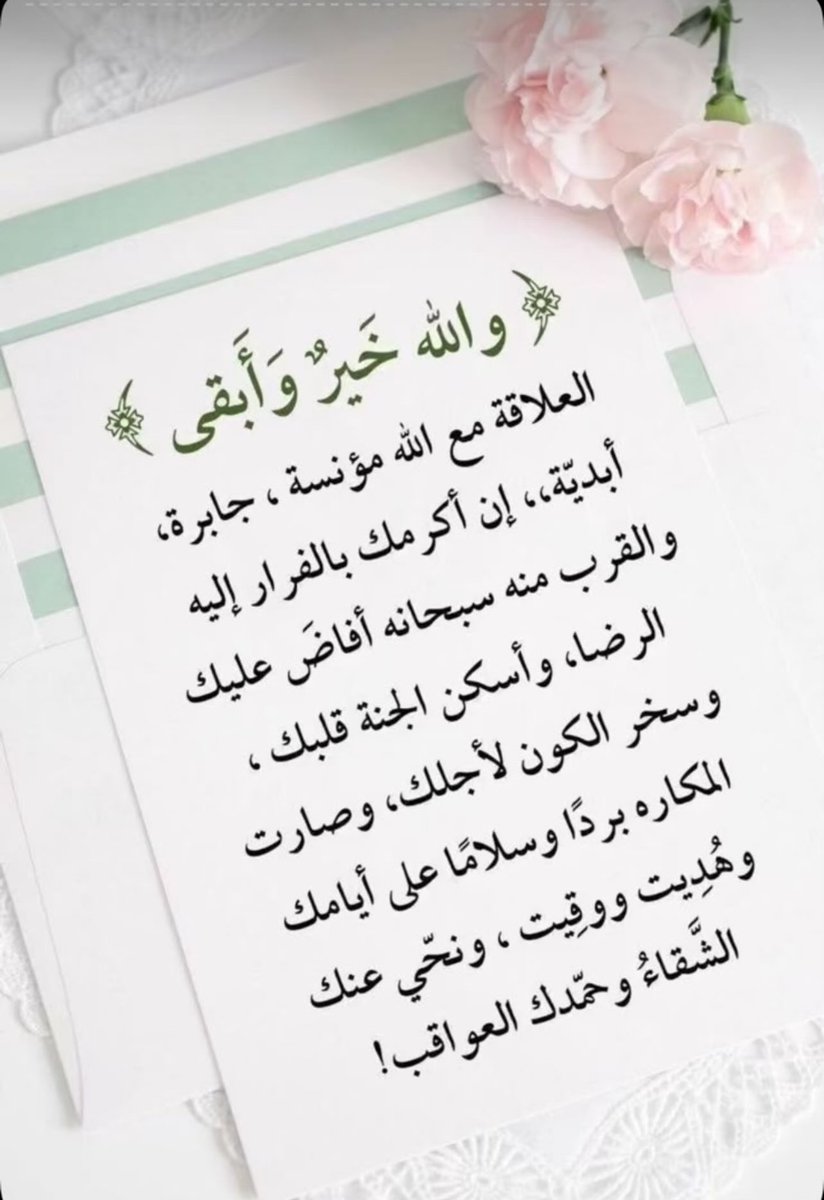 ﴿ والله خَيرٌ وَأَبقى ﴾
العلاقة مع الله مؤنسة ، جابرة،
أبديّة،، إن أكرمك بالفرار إليه
والقرب منه سبحانه أفاضَ عليك
الرضا، وأسكن الجنة قلبك ،
وسخر الكون لأجلك، وصارت
المكاره بردًا وسلامًا على أيامك
وهُدِيت ووقِيت ، ونحّي عنك
الشَّقاءُ وحمّدك العواقب!